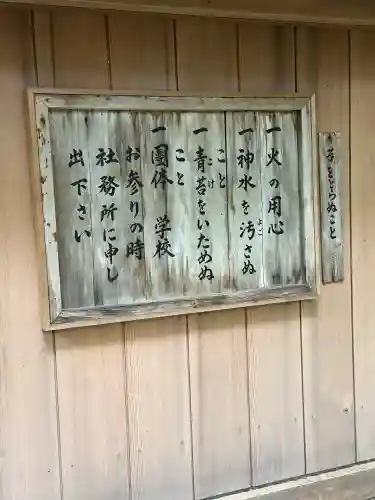 苔をとらぬこと
一火の用心
一神水を汚さぬ
こと
一青苔をいためぬ
こと
一團体 学校
お参りの時
社務所に申し
出下さい